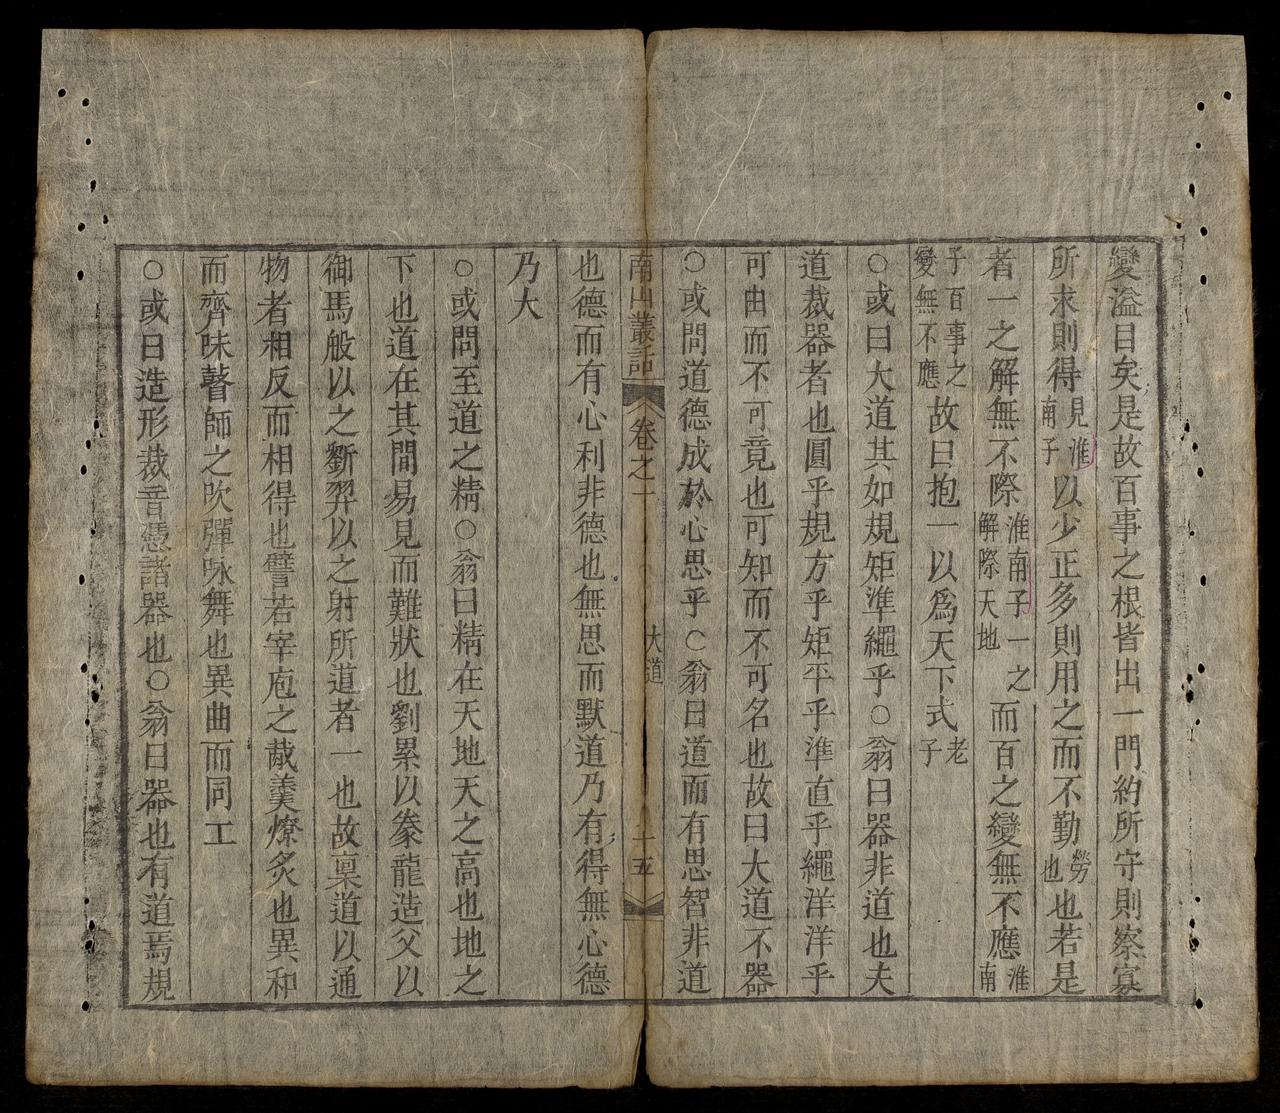 變溢目矣是故百事之根皆出一門約所守則察寡
所求則得見淮南子以少正多則用之而不勤勞也也若是
者一之解無不際淮南子一之解際天地而百之變無不應淮南
子百事之變無不應故曰抱一以爲天下式老子
○或曰大道其如規矩準繩乎○翁曰器非道也夫
道裁器者也圓乎規方乎矩平乎準直乎繩洋洋乎
可由而不可竟也可知而不可名也故曰大道不器
○或問道德成於心思乎○翁曰道而有思智非道
南山叢話 卷之一 大道 十五
也德而有心利非德也無思而默道乃有得無心德
乃大
○或問至道之精○翁曰精在天地天之高也地之
下也道在其間易見而難狀也劉累以豢龍造父以
御馬般以之斵羿以之射所道者一也故稟道以通
物者相反而相得也譬若宰庖之胾羹燎炙也異和
而齊味瞽師之吹彈咏舞也異曲而同工
○或曰造形裁音憑諸器也○翁曰器也有道焉規